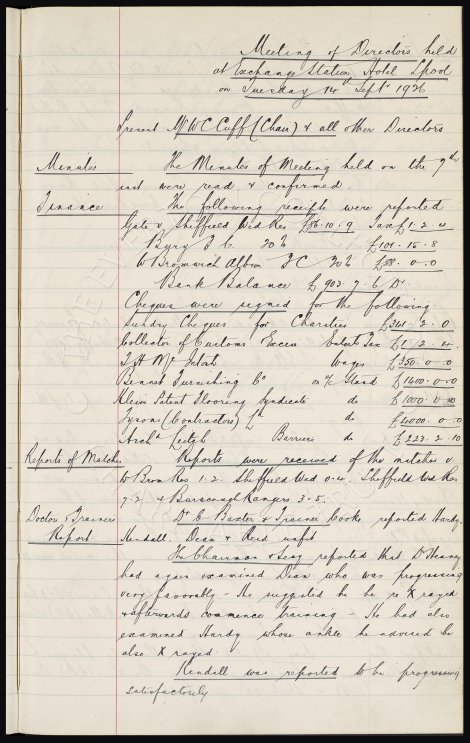 Meeting of Directors held
at Exchange Station Hotel Lpool
on Tuesday 14th Sept 1926
Present Mr W C Cuff (Chair) & all other Directors
Minutes The Minutes of Meeting held on the 7th
inst were read & confirmed.
Finance The following receipts were reported
Gate v Sheffield Wed Res £86.10.9 Tax £1.2.4
Bury F C 20% £101.15.8
W Bromwich Albion F C 20% £88.0.0
Bank Balance £903.7.6 Dr
Cheques were signed for the following.
Sundry Cheques for Charities £341.2.0
Collector of Customs Excise Entert Tax £1.2.4
T H McIntosh Wages £350.0.0
Bennet Furnishing Co on % Stand £1400.0.0
Klein Patent Flooring Syndicate do £1000.0.0
Tysons (Contractors) Ld do £4000.0.0
Archd Leitch Barriers do £223.2.10
Reports of Matches Reports were received of the matches v.
W Brom Res 1.2. Sheffield Wed 0.4. Sheffield Wed Res
7.2 & Burscough Rangers 3.5.
Doctor & Trainers Dr C Baxter & Trainer Cooke reported Hardy.
Report Kendall. Dean & Reid unfit
The Chairman & Secy reported that Dr Heaney
had again examined Dean who was progressing
very favorably - He suggested he be re X rayed
& afterwards commence training - He had also
examined Hardy whose ankle he advised be
also X rayed.
Kendall was reported to be progressing
satisfactorily